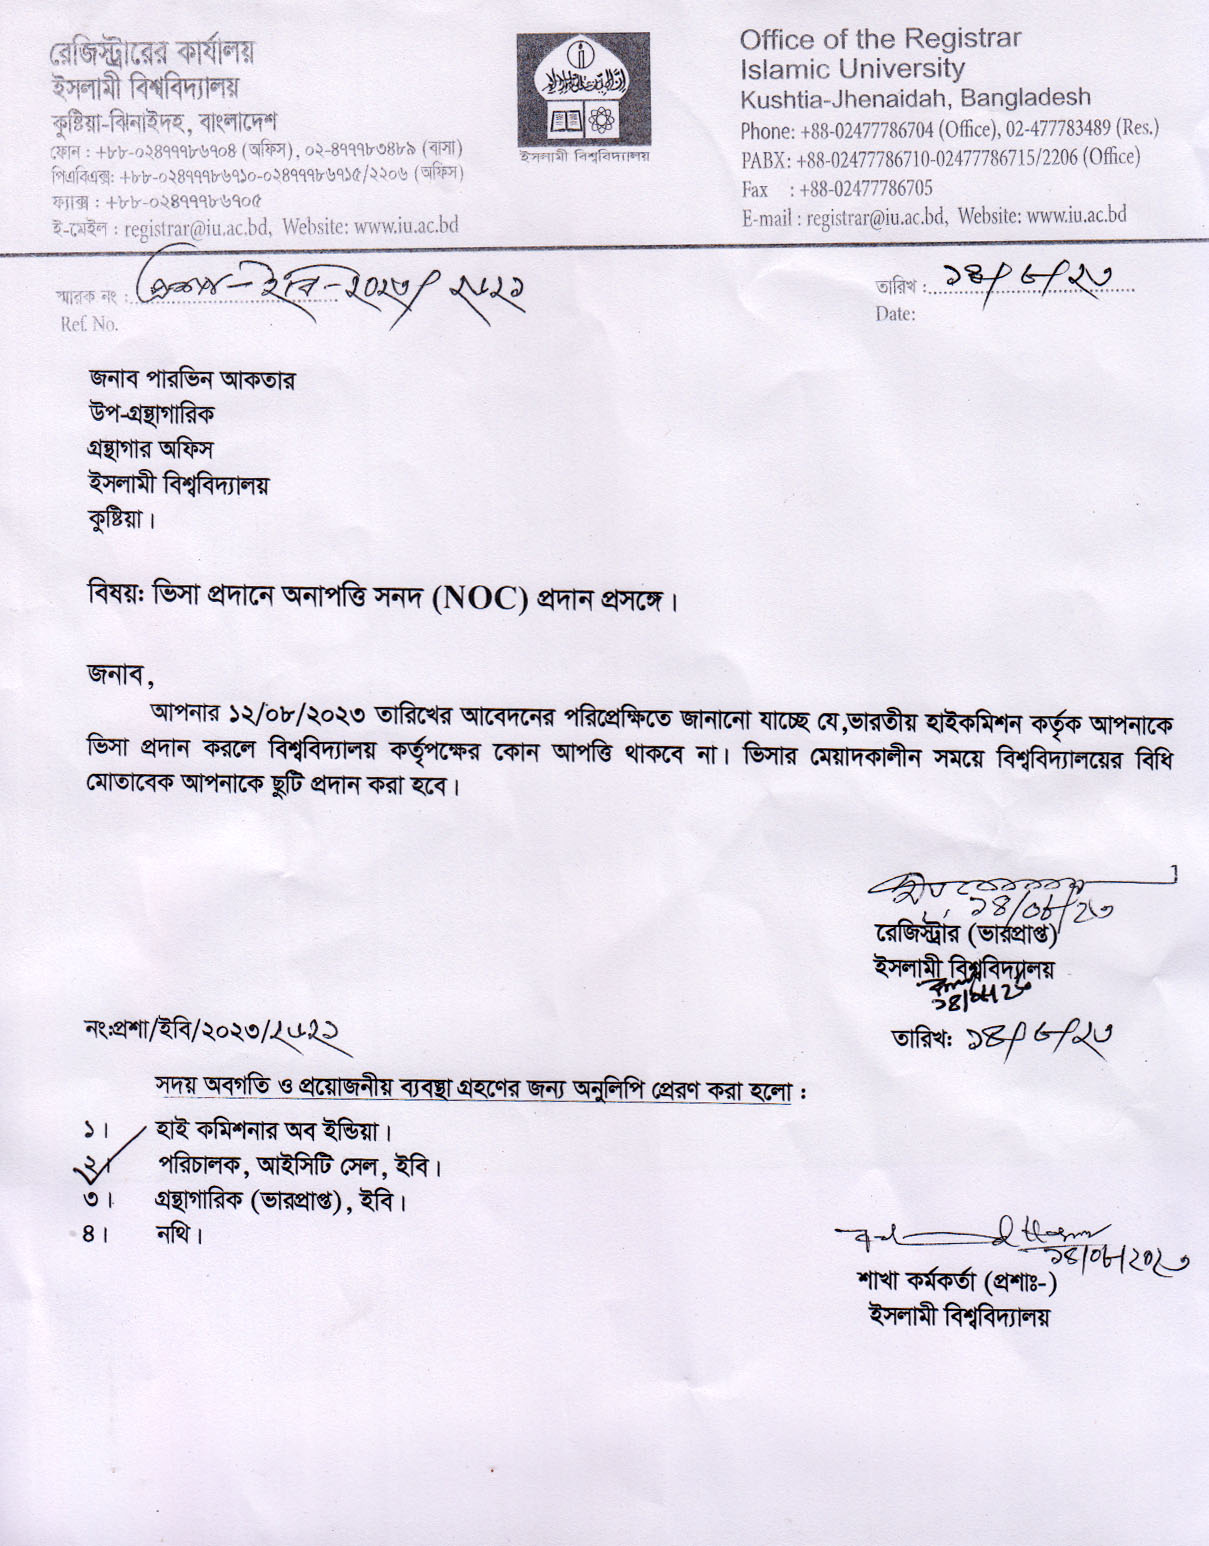 রেজিস্ট্রারের কার্যালয়
ইসলামী বিশ্ববিদ্যালয়
কুষ্টিয়া-ঝিনাইদহ, বাংলাদেশ
ফোন : +৮৮-০২৪৭৭৭৮৬৭০৪ (অফিস), ০২-৪৭৭৭৮৩৪৮৯ (বাসা)
পিএবিএক্স: +৮৮-০২৪৭৭৭৮৬৭১০-০২৪৭৭৭৮৬৭১৫/২২০৬ (অফিস)
ফ্যাক্স : +৮৮-০২৪৭৭৭৮৬৭০৫
ই-মেইল : registrar@iu.ac.bd, Website: www.iu.ac.bd
ইসলামী বিশ্ববিদ্যালয়
Office of the Registrar
Islamic University
Kushtia-Jhenaidah, Bangladesh
Phone: +88-02477786704 (Office), 02-477783489 (Res.)
PABX: +88-02477786710-02477786715/2206 (Office)
Fax : +88-02477786705
E-mail : registrar@iu.ac.bd, Website: www.iu.ac.bd
স্মারক নং : প্রশাঃ-ইবি-২০২৩/২৮২১
Ref. No.
তারিখ : ১৪/৮/২৩
Date:
জনাব পারভিন আকতার
উপ-গ্রন্থাগারিক
গ্রন্থাগার অফিস
ইসলামী বিশ্ববিদ্যালয়
কুষ্টিয়া।
বিষয়: ভিসা প্রদানে অনাপত্তি সনদ (NOC) প্রদান প্রসঙ্গে।
জনাব,
আপনার ১২/০৮/২০২৩ তারিখের আবেদনের পরিপ্রেক্ষিতে জানানো যাচ্ছে যে,ভারতীয় হাইকমিশন কর্তৃক আপনাকে
ভিসা প্রদান করলে বিশ্ববিদ্যালয় কর্তৃপক্ষের কোন আপত্তি থাকবে না। ভিসার মেয়াদকালীন সময়ে বিশ্ববিদ্যালয়ের বিধি
মোতাবেক আপনাকে ছুটি প্রদান করা হবে।
১৪/০৮/২৩
রেজিস্ট্রার (ভারপ্রাপ্ত)
ইসলামী বিশ্ববিদ্যালয়
১৪/০৮/২৩
নং:প্রশা/ইবি/২০২৩/২৮২১
তারিখ: ১৪/৮/২৩
সদয় অবগতি ও প্রয়োজনীয় ব্যবস্থা গ্রহণের জন্য অনুলিপি প্রেরণ করা হলো :
১। হাই কমিশনার অব ইন্ডিয়া।
২। পরিচালক, আইসিটি সেল, ইবি।
৩। গ্রন্থাগারিক (ভারপ্রাপ্ত), ইবি।
৪। নথি।
১৪/০৮/২০২৩
শাখা কর্মকর্তা (প্রশাঃ-)
ইসলামী বিশ্ববিদ্যালয়